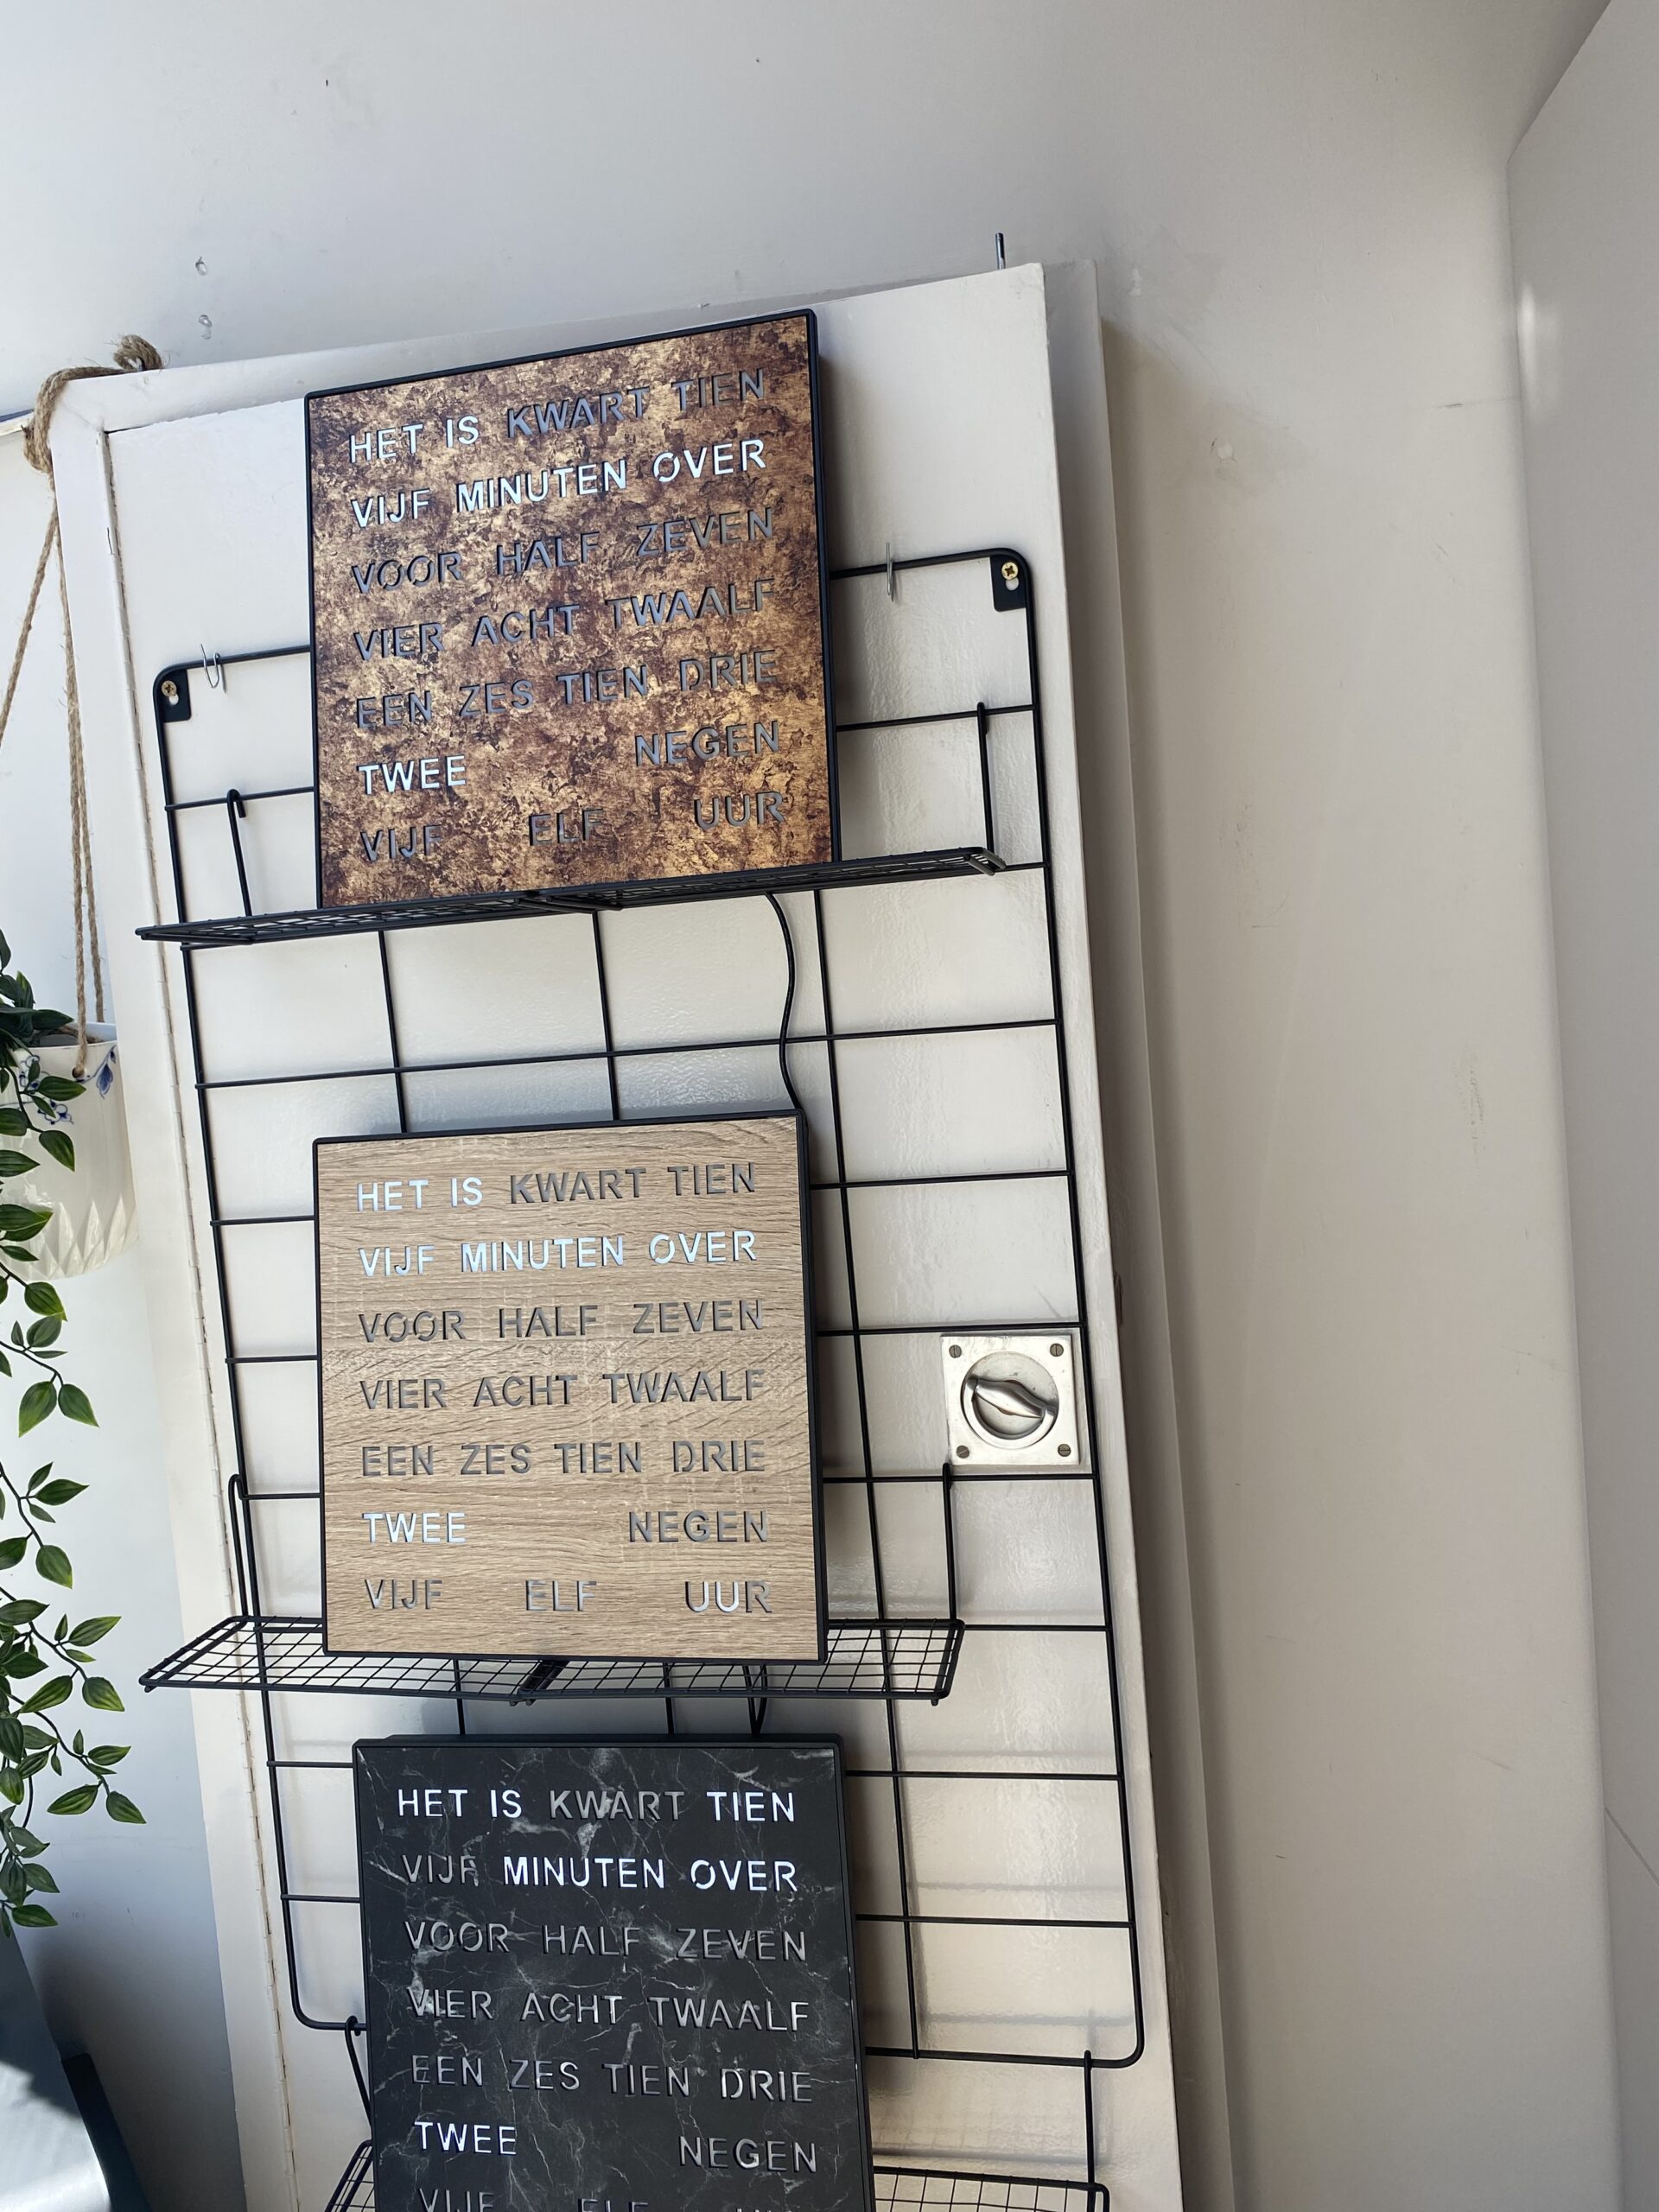 HET IS KWART TIEN
VIJF MINUTEN OVER
VOOR HALF ZEVEN
VIER ACHT TWAALF
EEN ZES TIEN DRIE
TWEE NEGEN
VIJF ELF UUR
HET IS KWART TIEN
VIJF MINUTEN OVER
VOOR HALF ZEVEN
VIER ACHT TWAALF
EEN ZES TIEN DRIE
TWEE NEGEN
VIJF ELF UUR
HET IS KWART TIEN
VIJF MINUTEN OVER
VOOR HALF ZEVEN
VIER ACHT TWAALF
EEN ZES TIEN DRIE
TWEE NEGEN
VIJF ELF